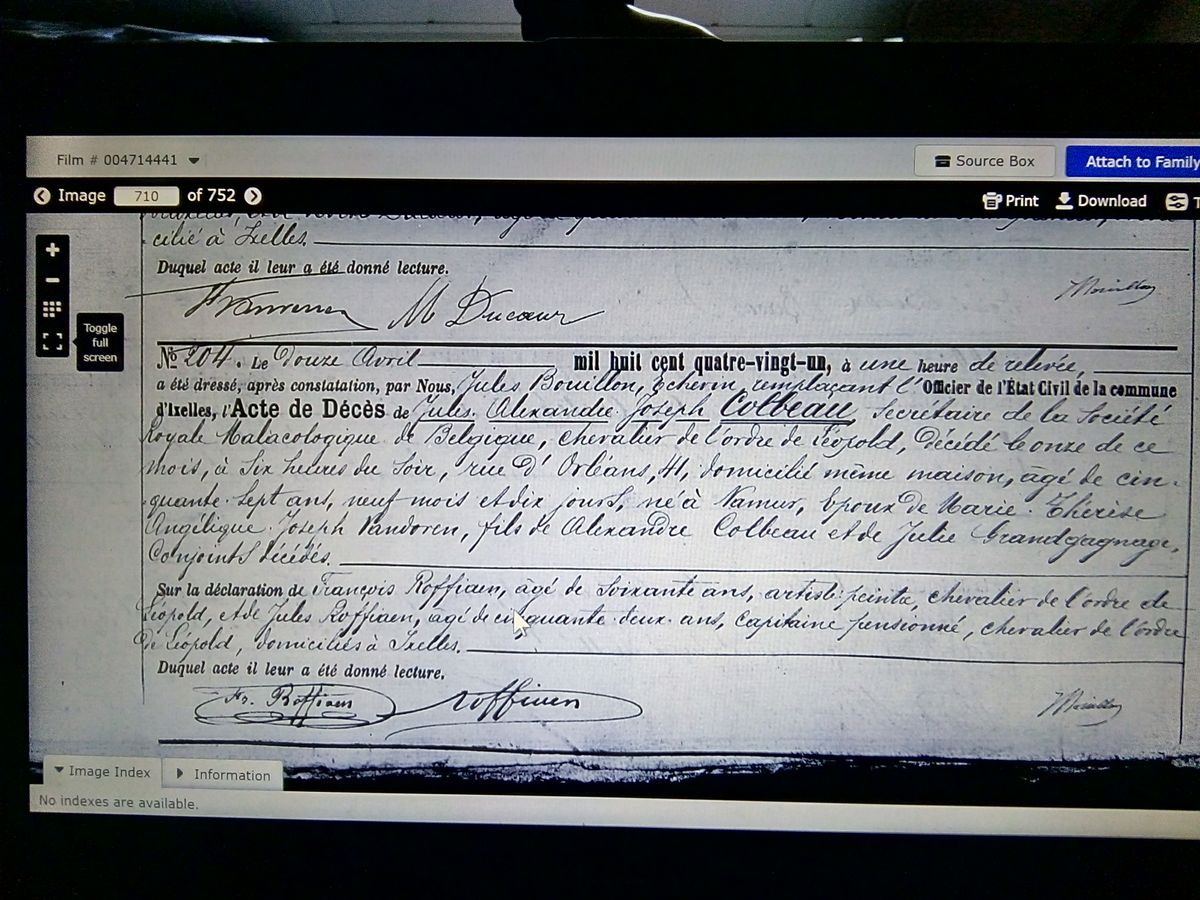 Film # 004714441
Source Box
Attach to Family
Image 710 of 752
Print
Download
T
cilié à Ixelles.
Duquel acte il leur a été donné lecture.
M Ducœur
Toggle full screen
No 204. Le Douze Avril mil huit cent quatre-vingt-un, à une heure de relevée,
a été dressé, après constatation, par Nous, Jules Bouillon, Echevin, remplaçant l'Officier de l'État Civil de la commune
d'Ixelles, l'Acte de Décès de Jules, Alexandre Joseph Colbeau, Secrétaire de la Société
Royale Malacologique de Belgique, chevalier de l'ordre de Léopold, Décédé le onze de ce
mois, à Six heures du Soir, rue D'Orléans, 41, domicilié même maison, âgé de cin-
quante-Sept ans, neuf mois et dix jours, né à Namur, Epoux de Marie-Thérèse
Angélique Joseph Vandoren, fils de Alexandre Colbeau et de Julie Grandgagnage,
Conjoints décédés.
Sur la déclaration de François Roffiaen, âgé de Soixante ans, artiste peintre, chevalier de l'ordre de
Léopold, et de Jules Roffiaen, âgé de cinquante-deux ans, Capitaine pensionné, chevalier de l'ordre
de Léopold, domiciliés à Ixelles.
Duquel acte il leur a été donné lecture.
Fr. Roffiaen Roffiaen
Image Index
Information
No indexes are available.